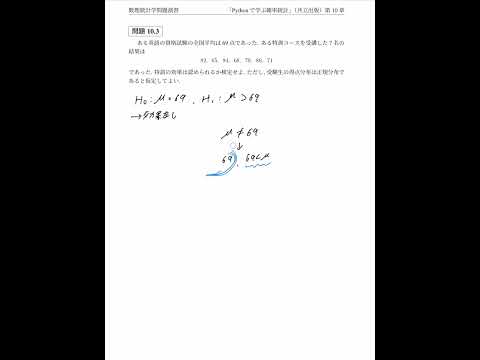 数理統計学問題演習 「Pythonで学ぶ確率統計」(共立出版) 第10章
問題 10.3
ある英語の資格試験の全国平均は69点であった. ある特訓コースを受講した7名の
結果は
82, 65, 84, 68, 70, 86, 71
であった. 特訓の効果は認められるか検定せよ. ただし, 受験生の得点分布は正規分布で
あると仮定してよい.
H₀: μ = 69 , H₁: μ > 69
→効果なし
μ ≠ 69
↓
69 69<μ